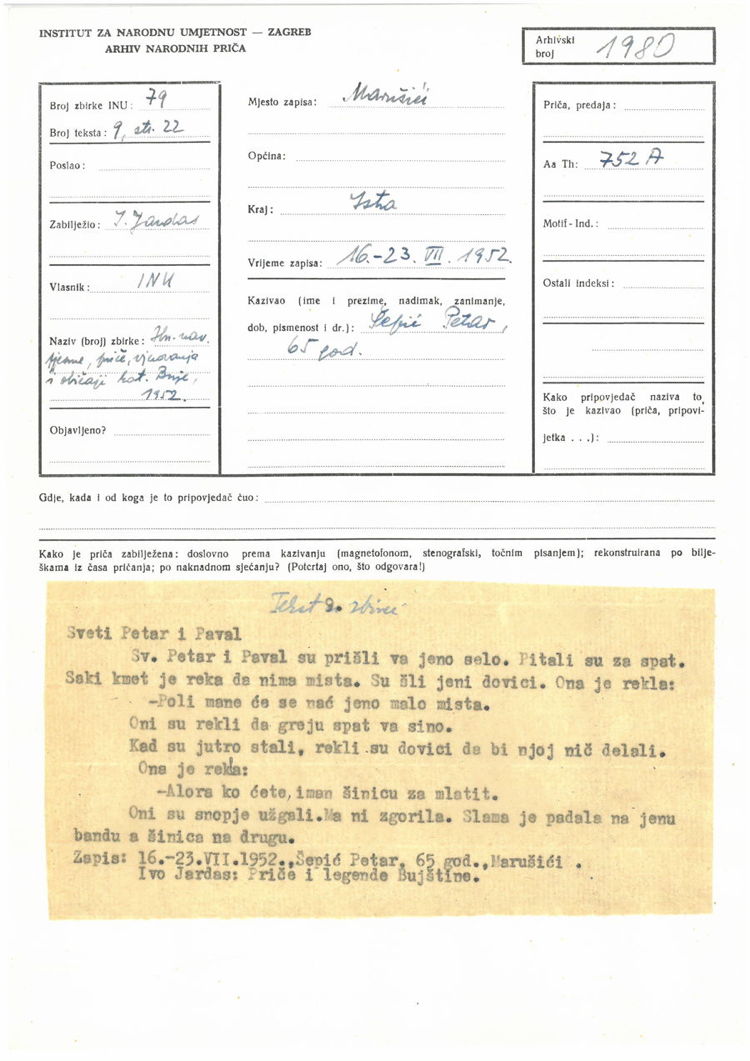 INSTITUT ZA NARODNU UMJETNOST — ZAGREB
ARHIV NARODNIH PRIČA
Arhivski
broj 1980
Broj zbirke INU: 79
Broj teksta: 9, str. 22
Poslao:
Zabilježio: I. Jardas
Vlasnik: INU
Naziv (broj) zbirke: Hrv. nar.
pjesme, priče, vjerovanja
i običaji kot. Buje,
1952.
Objavljeno?
Mjesto zapisa: Marušići
Općina:
Kraj: Istra
Vrijeme zapisa: 16.-23. VII. 1952.
Kazivao (ime i prezime, nadimak, zanimanje,
dob, pismenost i dr.): Šepić Petar,
65 god.
Priča, predaja:
Aa Th: 752 A
Motif-Ind.:
Ostali indeksi:
Kako pripovjedač naziva to,
što je kazivao (priča, pripovi-
jetka . . .):
Gdje, kada i od koga je to pripovjedač čuo:
Kako je priča zabilježena: doslovno prema kazivanju (magnetofonom, stenografski, točnim pisanjem); rekonstruirana po bilje-
škama iz časa pričanja; po naknadnom sjećanju? (Potcrtaj ono, što odgovara!)
Tekst 9. zbirci
Sveti Petar i Paval
Sv. Petar i Paval su prišli va jeno selo. Pitali su za spat.
Saki kmet je reka da nima mista. Su šli jeni dovici. Ona je rekla:
-Poli mane će se nać jeno malo mista.
Oni su rekli da greju spat va sino.
Kad su jutro stali, rekli su dovici da bi njoj nič delali.
Ona je rekla:
-Alora ko ćete, iman šinicu za mlatit.
Oni su snopje užgali. Ma ni zgorila. Slama je padala na jenu
bandu a šinica na drugu.
Zapis: 16.-23.VII.1952., Šepić Petar, 65 god., Marušići .
Ivo Jardas: Priče i legende Bujštine.